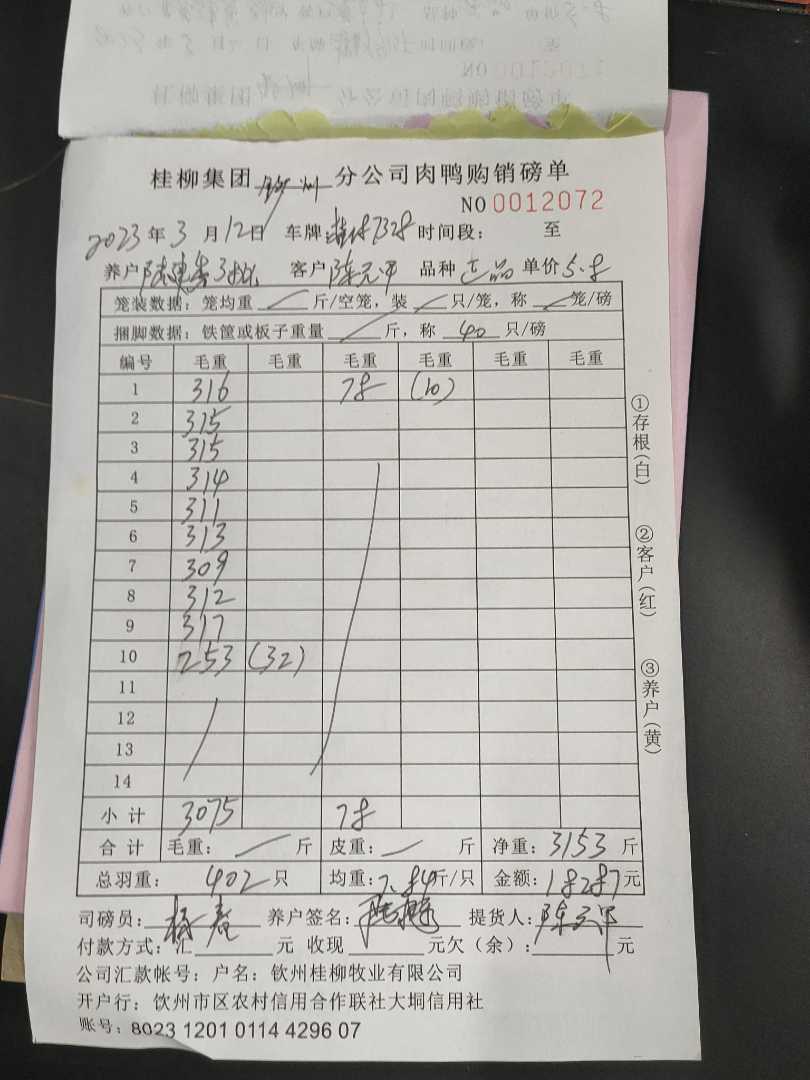 桂柳集团 钦州 分公司肉鸭购销磅单
NO 0012072
2023 年 3 月 12 日 车牌 7328 时间段: 至
养户 3批 客户 陈元甲 品种 正品 单价 5.8
笼装数据: 笼均重 斤/空笼, 装 只/笼, 称 笼/磅
捆脚数据: 铁筐或板子重量 斤, 称 40 只/磅
编号 毛重 毛重 毛重 毛重 毛重 毛重
1 316 78 (10)
2 315
3 315
4 314
5 311
6 313
7 309
8 312
9 317
10 253 (32)
11
12
13
14
小计 3075 78
合计 毛重: 斤 皮重: 斤 净重: 3153 斤
总羽重: 402 只 均重: 7.84 斤/只 金额: 18287 元
司磅员: 养户签名: 提货人: 陈元甲
付款方式: 汇 元 收现 元欠(余): 元
公司汇款帐号: 户名: 钦州桂柳牧业有限公司
开户行: 钦州市区农村信用合作联社大垌信用社
账号: 8023 1201 0114 4296 07
①存根(白)
②客户(红)
③养户(黄)